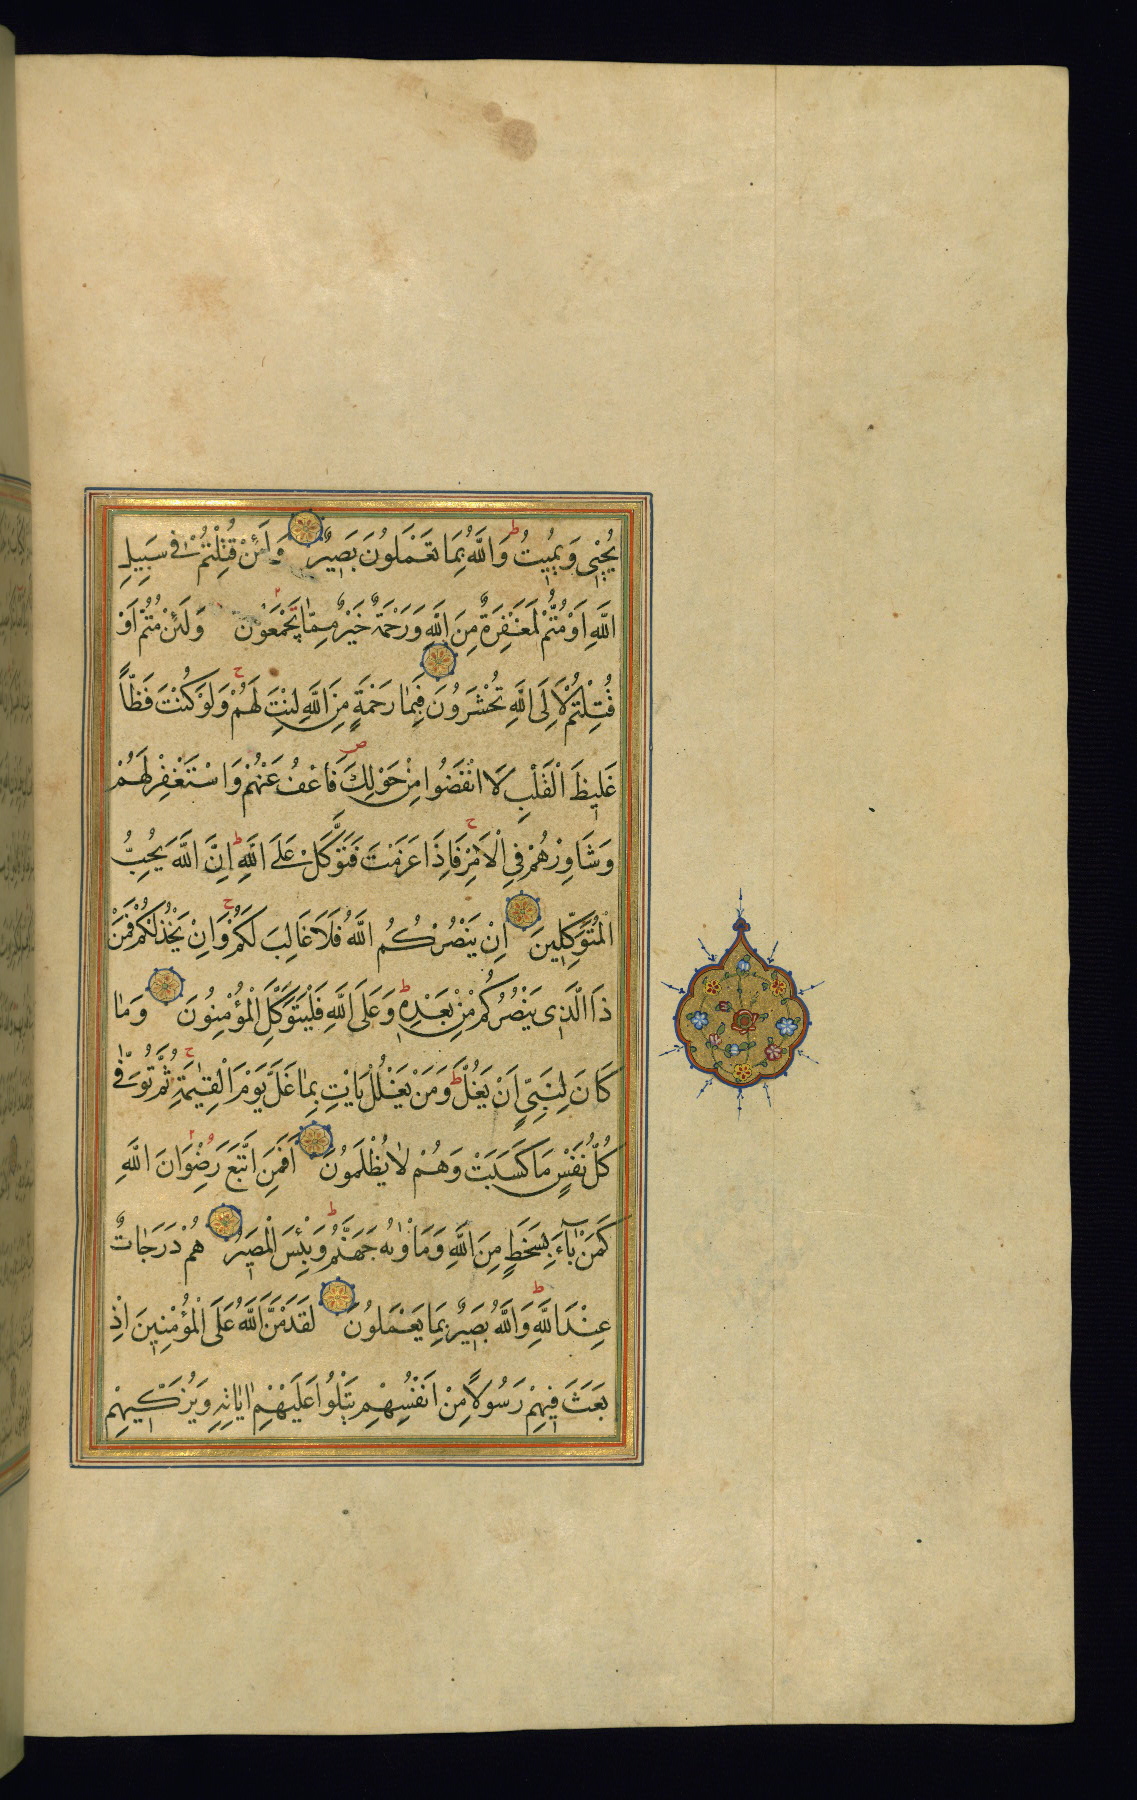 يُحْيٖى وَيُمٖيتُ ط وَاللّٰهُ بِمَا تَعْمَلُونَ بَصٖيرٌ وَلَئِنْ قُتِلْتُمْ فٖى سَبٖيلِ
اللّٰهِ اَوْ مُتُّمْ لَمَغْفِرَةٌ مِنَ اللّٰهِ وَرَحْمَةٌ خَيْرٌ مِمَّا تَجْمَعُونَ وَلَئِنْ مُتُّمْ اَوْ
قُتِلْتُمْ لَاِلَى اللّٰهِ تُحْشَرُونَ فَبِمَا رَحْمَةٍ مِنَ اللّٰهِ لِنْتَ لَهُمْ ج وَلَوْ كُنْتَ فَظًّا
غَلٖيظَ الْقَلْبِ لَا انْفَضُّوا مِنْ حَوْلِكَ ص فَاعْفُ عَنْهُمْ وَاسْتَغْفِرْ لَهُمْ
وَشَاوِرْهُمْ فِى الْاَمْرِ ج فَاِذَا عَزَمْتَ فَتَوَكَّلْ عَلَى اللّٰهِ ط اِنَّ اللّٰهَ يُحِبُّ
الْمُتَوَكِّلٖينَ اِنْ يَنْصُرْكُمُ اللّٰهُ فَلَا غَالِبَ لَكُمْ ج وَاِنْ يَخْذُلْكُمْ فَمَنْ
ذَا الَّذٖى يَنْصُرُكُمْ مِنْ بَعْدِهٖ ط وَعَلَى اللّٰهِ فَلْيَتَوَكَّلِ الْمُؤْمِنُونَ وَمَا
كَانَ لِنَبِىٍّ اَنْ يَغُلَّ ط وَمَنْ يَغْلُلْ يَاْتِ بِمَا غَلَّ يَوْمَ الْقِيٰمَةِ ج ثُمَّ تُوَفّٰى
كُلُّ نَفْسٍ مَا كَسَبَتْ وَهُمْ لَا يُظْلَمُونَ اَفَمَنِ اتَّبَعَ رِضْوَانَ اللّٰهِ
كَمَنْ بَآءَ بِسَخَطٍ مِنَ اللّٰهِ وَمَاْوٰيهُ جَهَنَّمُ ط وَبِئْسَ الْمَصٖيرُ هُمْ دَرَجَاتٌ
عِنْدَ اللّٰهِ ط وَاللّٰهُ بَصٖيرٌ بِمَا يَعْمَلُونَ لَقَدْ مَنَّ اللّٰهُ عَلَى الْمُؤْمِنٖينَ اِذْ
بَعَثَ فٖيهِمْ رَسُولًا مِنْ اَنْفُسِهِمْ يَتْلُوا عَلَيْهِمْ اٰيَاتِهٖ وَيُزَكّٖيهِمْ